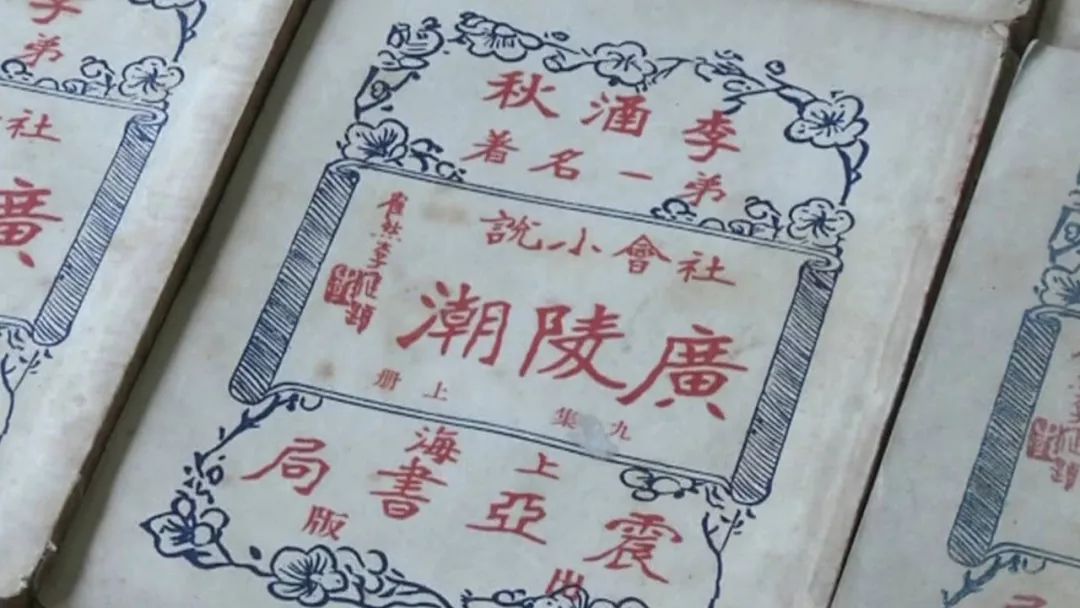 李涵秋
弟一名著
社會小說
廣陵潮
九集 上册
上海
震亞書局
出版
弟
社
廣